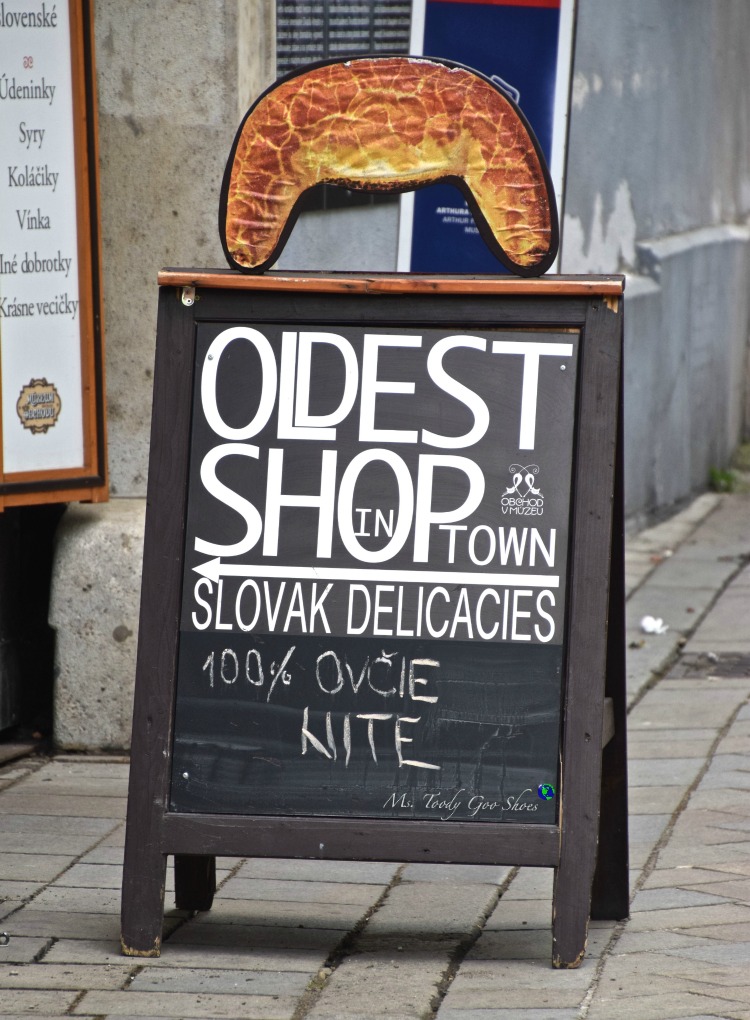 slovenské
æ
Údeninky
Syry
Koláčiky
Vínka
Iné dobrotky
Krásne vecičky
MÚZEUM
OBCHODU
ARTHUR
OLDEST
SHOP
IN
TOWN
OBCHOD
V MÚZEU
SLOVAK DELICACIES
100% OVČIE
NITE
Ms. Toody Goo Shoes